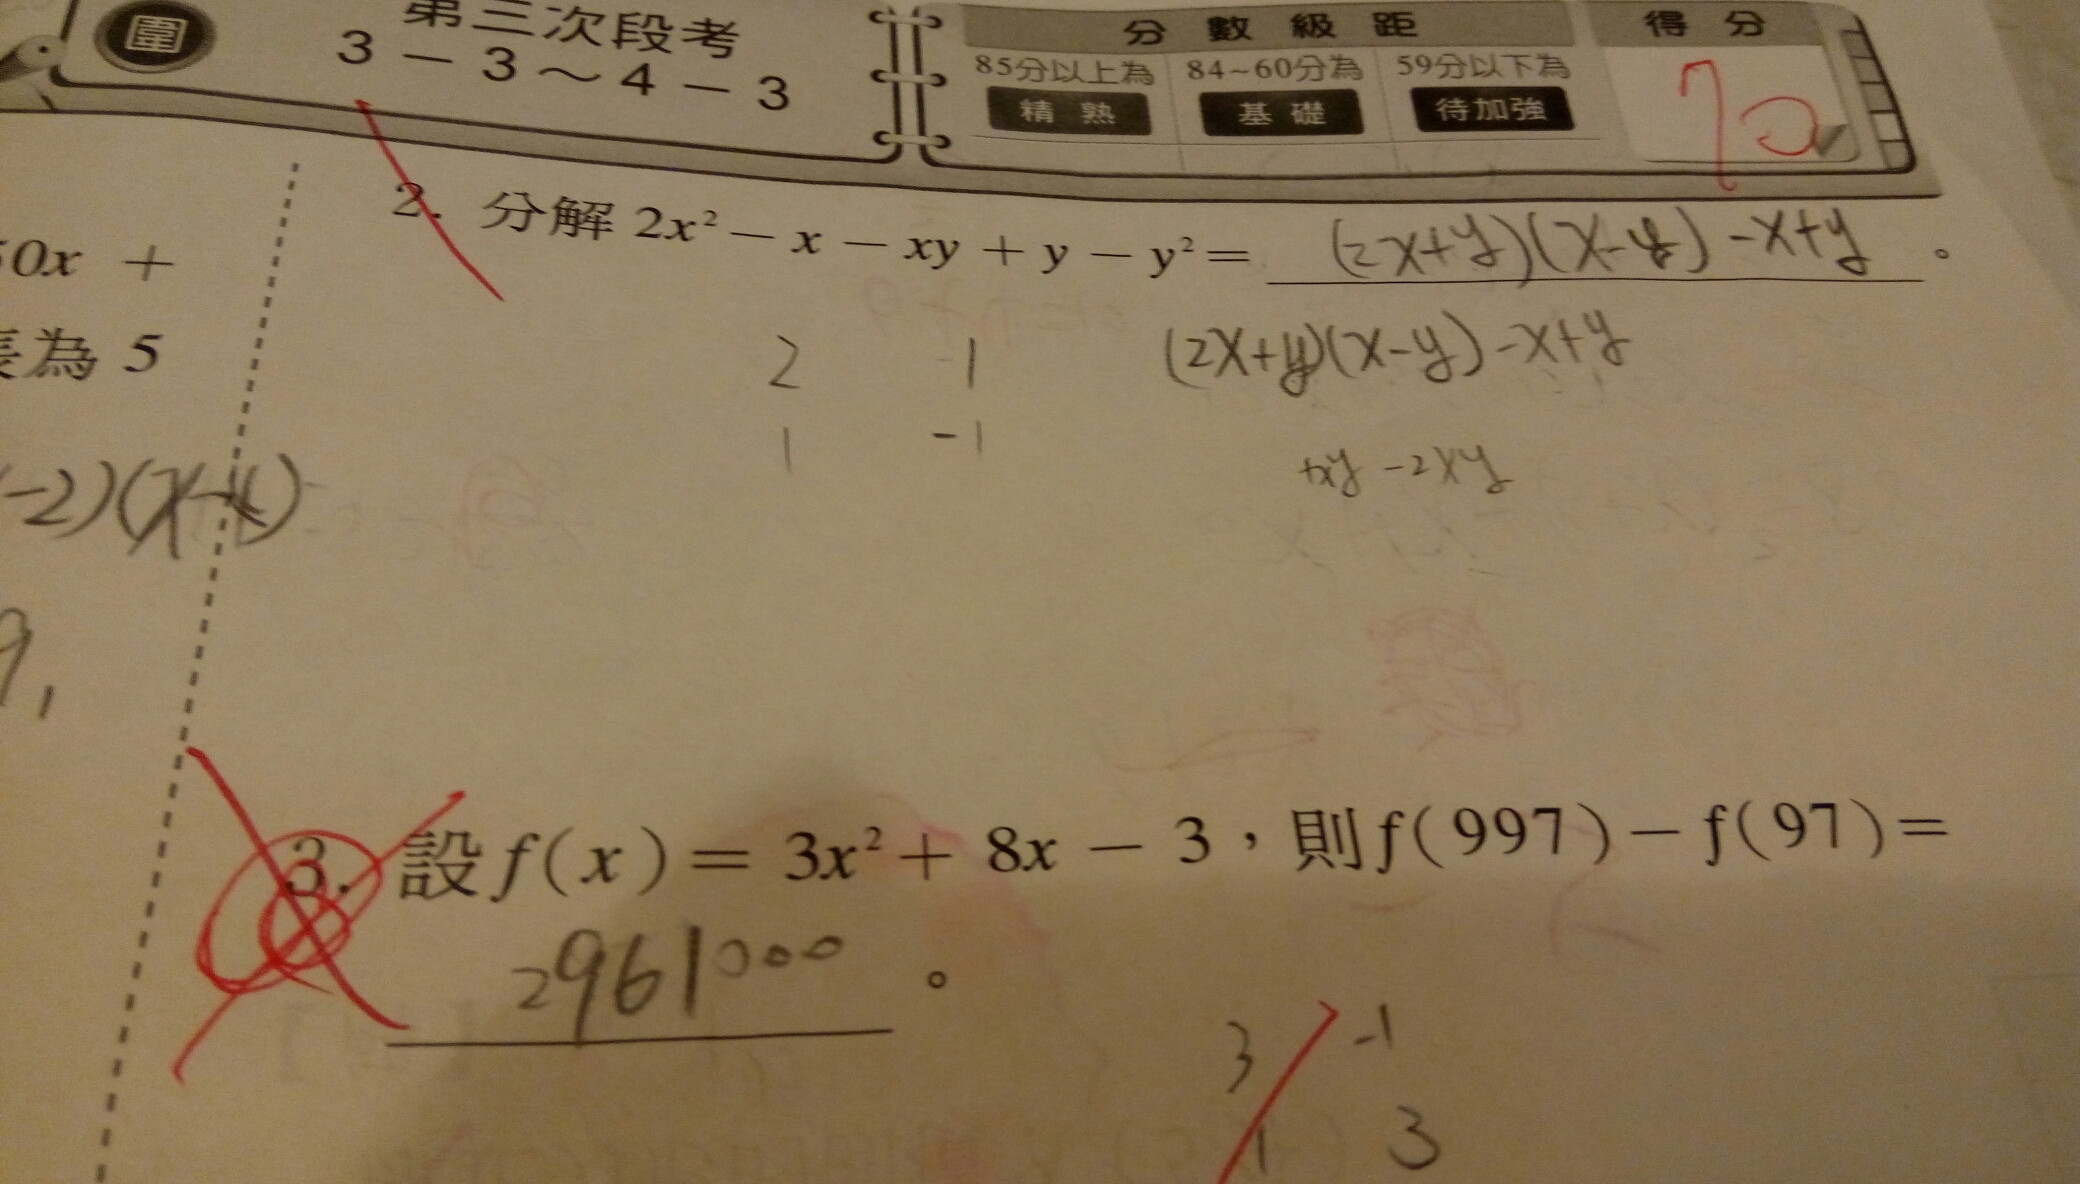 圍
第三次段考
3－3～4－3
分數級距
得分
85分以上為
84~60分為
59分以下為
精熟
基礎
待加強
70
2. 分解 2x² － x － xy ＋ y － y² ＝ (2x+y)(x-y) -x+y 。
50x ＋
長為 5
2 1
1 -1
(2x+y)(x-y) -x+y
+xy -2xy
-2)(x-4)
9,
3. 設 f(x) ＝ 3x² ＋ 8x － 3，則 f(997) － f(97) ＝
2961000 。
3 -1
1 3